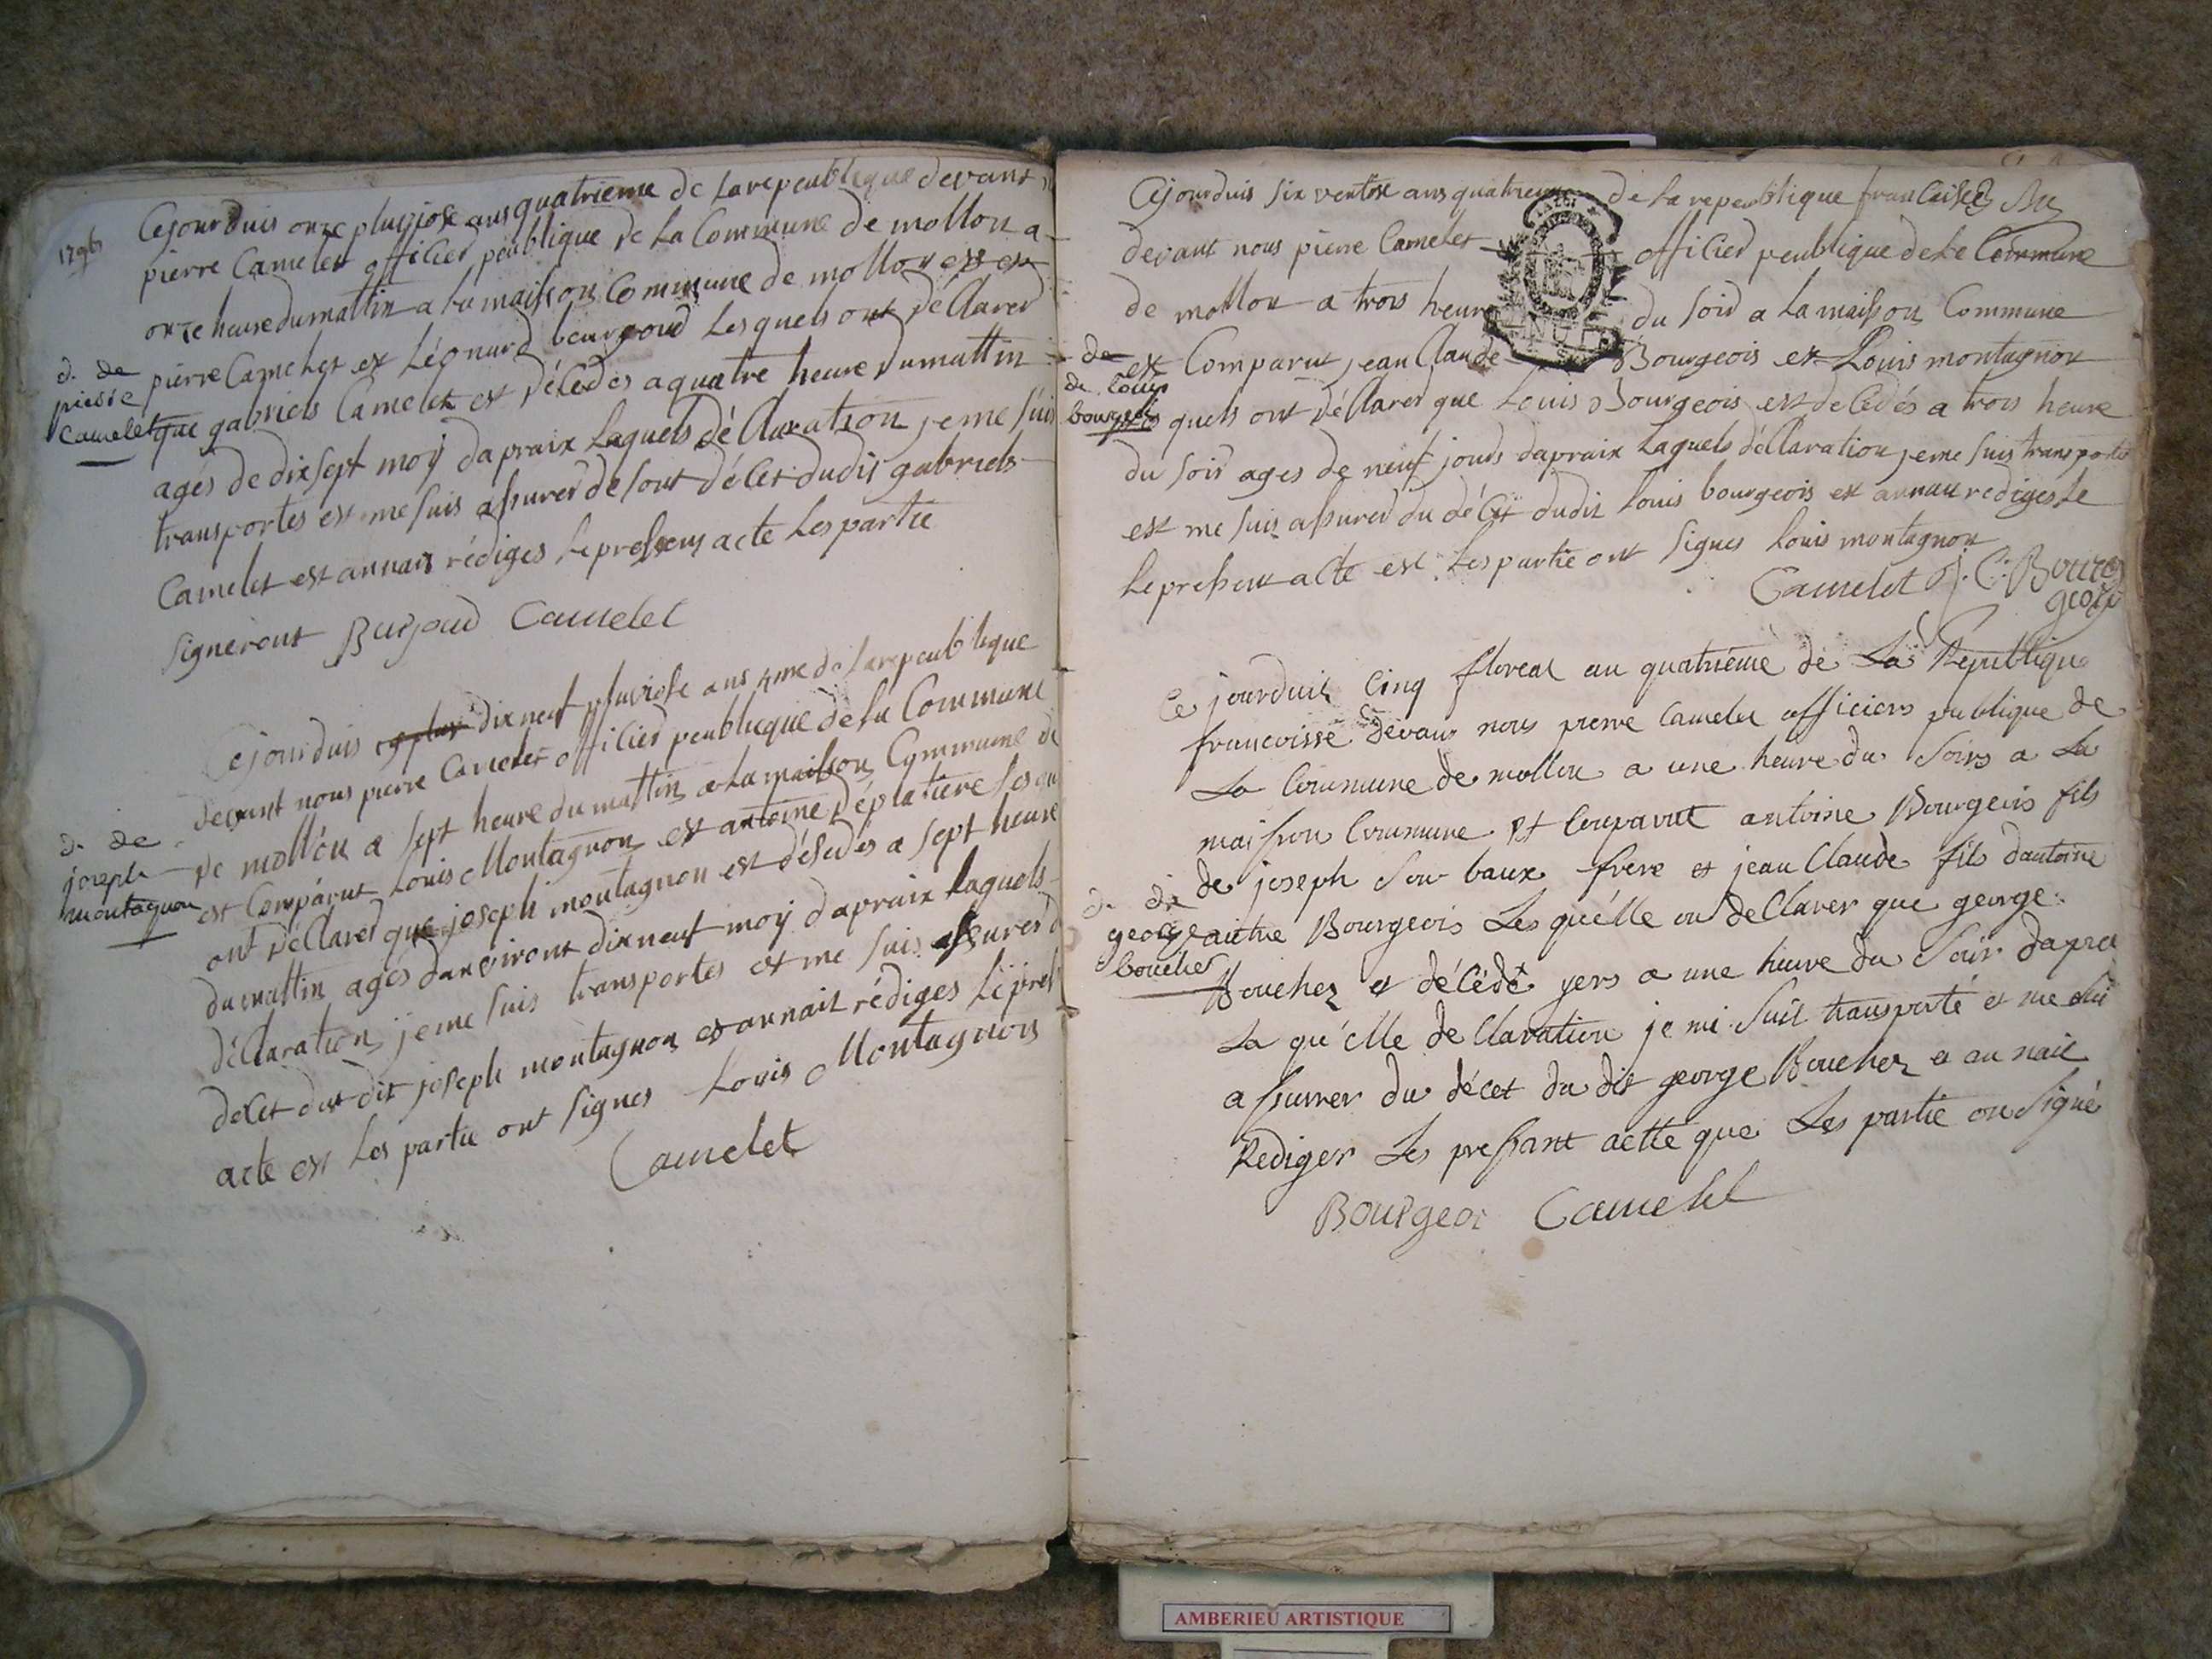 1796
Cejourduis onze pluviose ans quatrieme de La repeublique devant
pierre Camelet officier peublique de La Commune de mollon a
onze heure du mattin a La maison Commune de mollon est
pierre Camelet et Léonard bourgoud Les quels ont déClarer
d. de
pierre
Camelet
que gabriels Camelet est déCedés a quatre heure du mattin
agés de dix sept moÿ dapraix Laquels déClaration je me suis
transportes est me suis assurer de sont déCet dudit gabriels
Camelet est annais rédiges Le present acte Les partie
signeront Burjoud Camelet
Cejourduis dix neuf pluviose ans 4me de La repeublique
devant nous pierre Camelet officier peublique de La Commune
de mollon a sept heure du mattin a La maison Commune de
d. de
joseph
montagnon
est Comparut Louis Montagnon est antoine déplatiere Les
ont déClarer que joseph montagnon est déSedés a sept heure
du mattin agés danviront dix neuf moÿ dapraix Laquels
déClaration je me suis transportes et me suis assurer
deCet du dit joseph montagnon est annait rédiges Le pres
acte est Les partie ont signes Louis Montagnon
Camelet
Cejourduis six ventose ans quatrieme de La repeublique francaise
devant nous pierre Camelet officier peublique de Le Commune
de mollon a trois heure du soir a La maison Commune
de
de Louis
bourgeois
est Comparut jean Claude Bourgeois et Louis montagnon
quels ont déClarer que Louis Bourgeois est deCedés a trois heure
du soir ages de neuf jours dapraix Laquels déClaration je me suis transportes
est me suis assurer du déCet dudit Louis bourgeois est annau rediges Le
Le present acte est Les partie ont signes Louis montagnon
Camelet J. C. Bourgeois
Ce jourduit Cinq floreal an quatriéme de La Republique
francoisse devant nous pierre Camelet officiers publique de
La Commune de mollon a une heure du soirs a La
maison Commune et Comparut antoine Bourgeois fils
de joseph son baux frere et jean Claude fils dantoine
d. de
george
boucher
autre Bourgeois Les quélle on deClarer que george
Boucher et déCédé yers a une heure du soir dapre
La qu'elle deClaration je mi suit transporté et me sui
assurrer du décet du dit george Boucher e an nait
Rediger Les pressant actte que Les partie on signé
Bourgeoi Camelet
AMBERIEU ARTISTIQUE